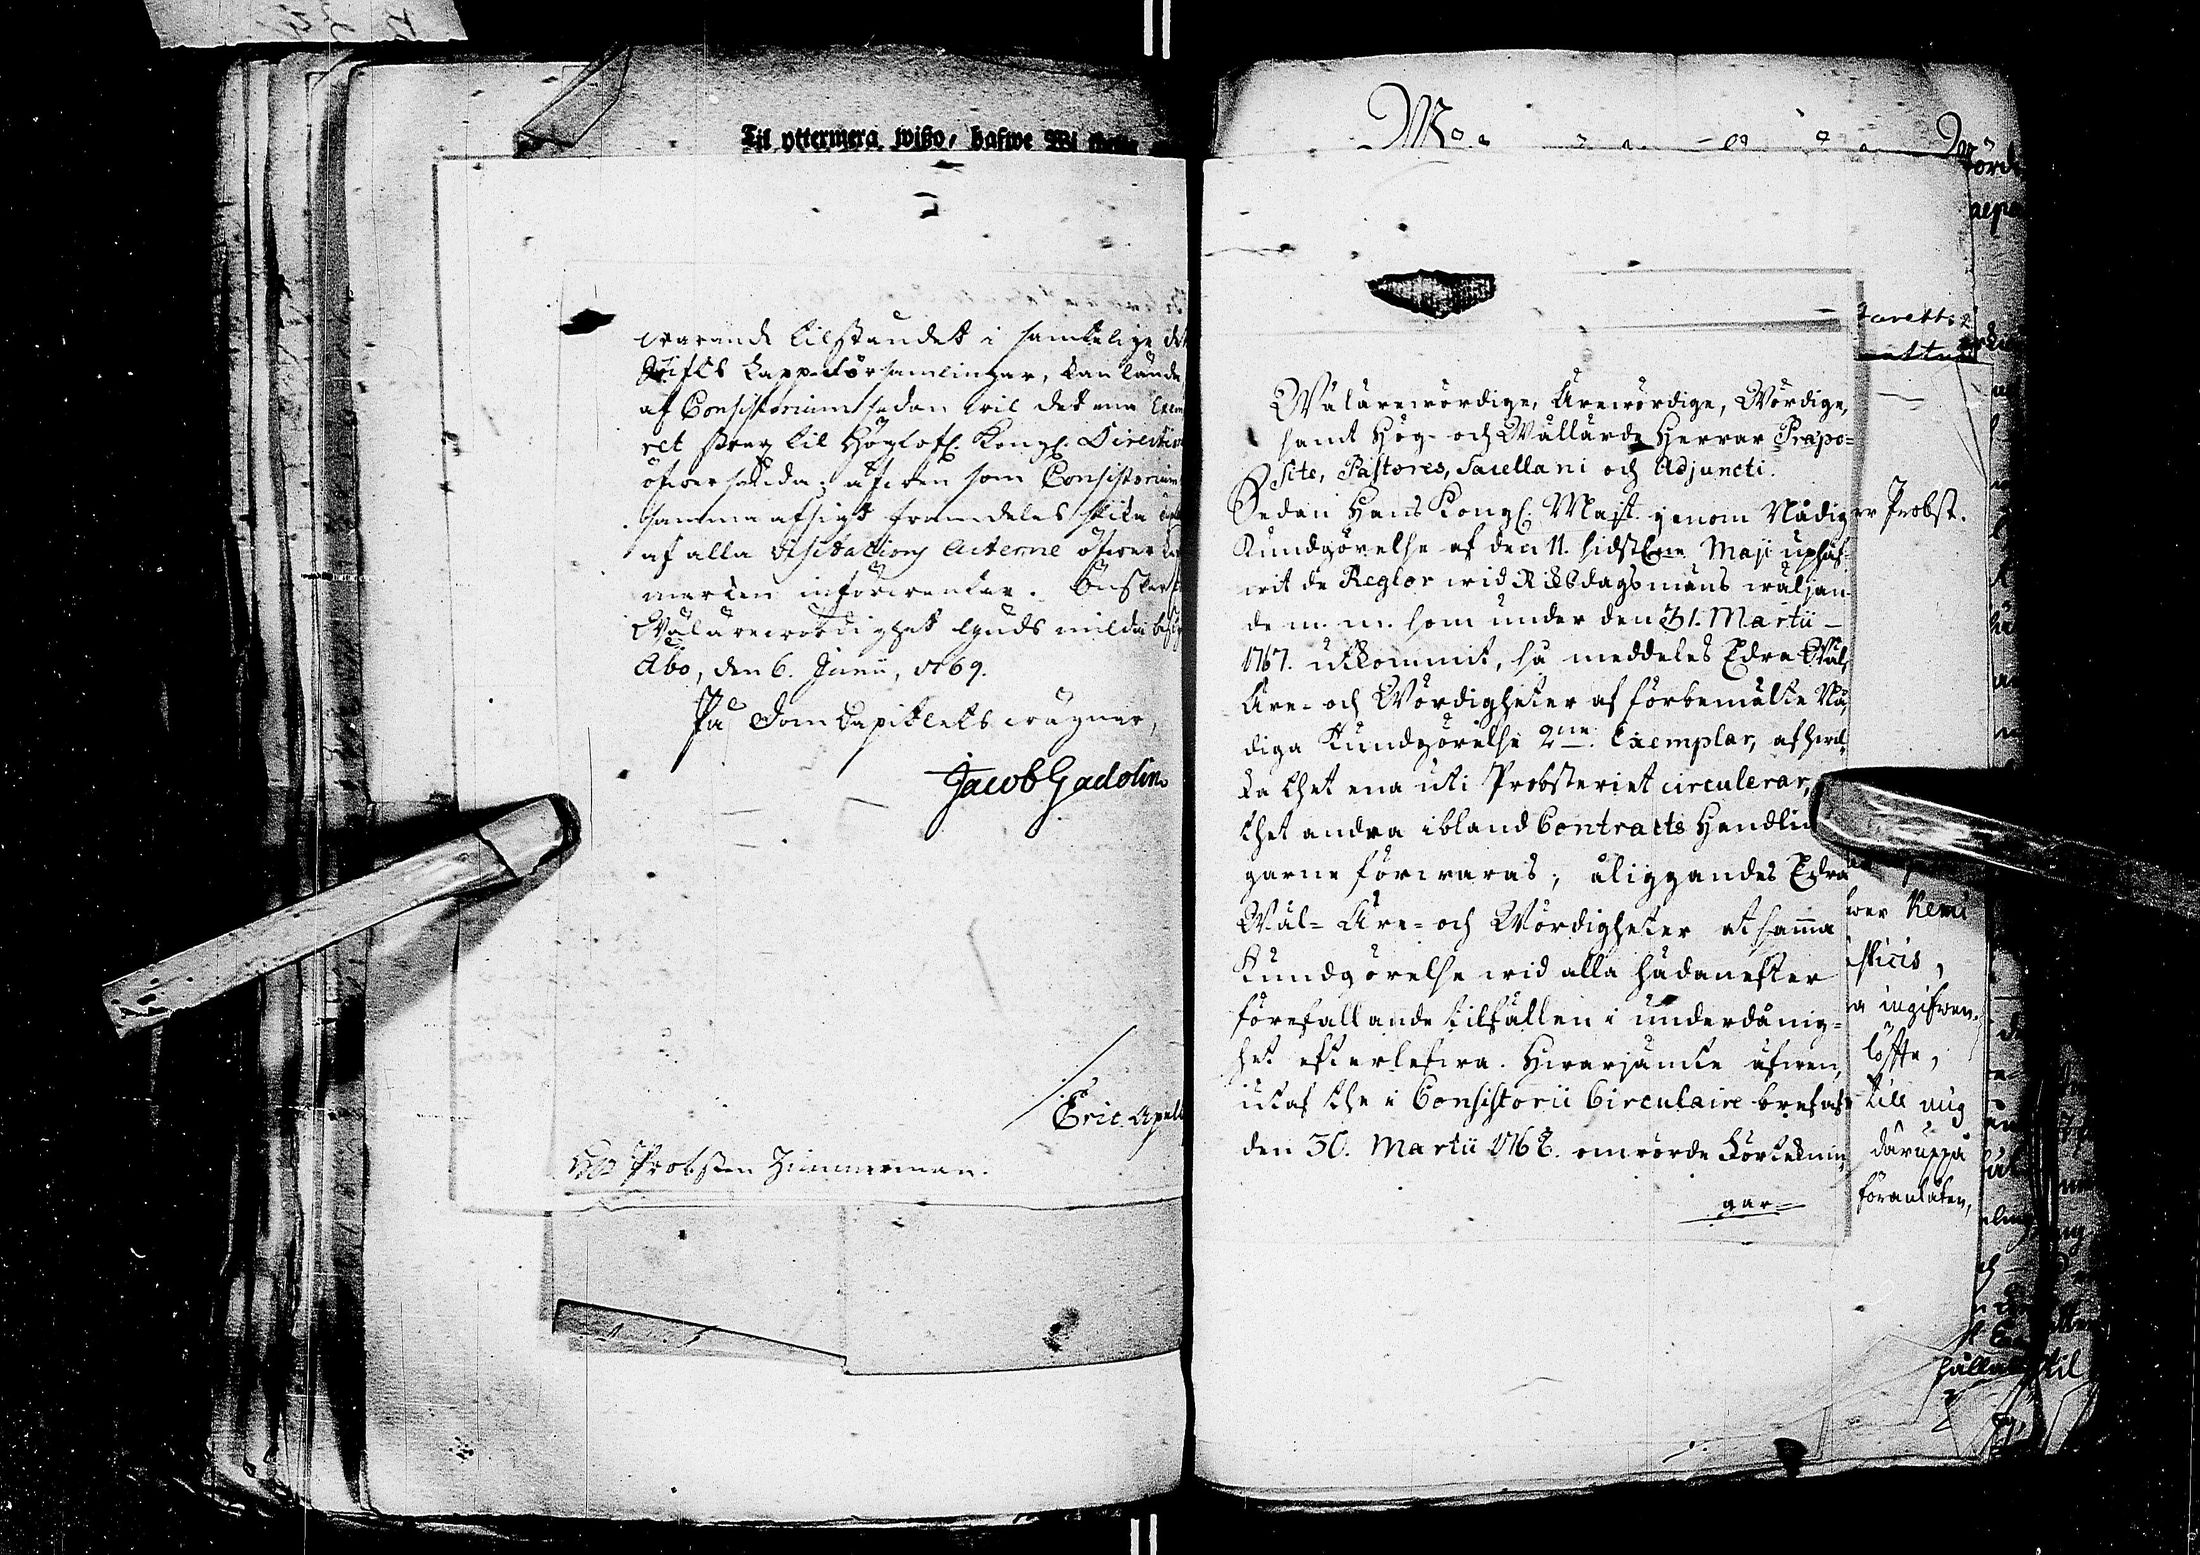 Til yttermera wißo, hafwe Wi
warande tilståndet i samtelige
Stifts Lappeförsamlingar, kan lända
af Consistorium sedan wil det ena
ret strax til Höglofl. Kongl. Directio
öfwersända; äfwen som Consistorium
samma afsigt framdeles skicka
af alla Visitations Acterne öfwer
marken införwäntar. Önskar
Wälärewördighet Guds milda
Åbo, den 6. Junii, 1769.
På Dom Capitlets wägnar,
Jacob Gadolin
Eric Apell
Probsten Zimmerman.
Wälärewördige, Ärewördige, Wördige,
samt Hög- och Wällärde Herrar Præpo-
siti, Pastores, Sacellani och Adjuncti.
Sedan Hans Kongl. Majt. genom Nådig
Kundgörelse af den 11. sidstl. Maji uphäf-
wit de Reglor wid Riksdagsmäns wäljan-
de m. m. som under den 31. Martii
1767. utkommit, så meddelas Edra Wäl-
Äre- och Wördigheter af förbemälte Nå-
diga Kundgörelse 2ne Exemplar, af hwil-
ka thet ena uti Probsteriet circulerar,
thet andra ibland Contracts Handlin
garne förwaras; åliggandes Edra
Wäl- Äre- och Wördigheter at samma
Kundgörelse wid alla hädanefter
förefallande tilfällen i underdånig-
het efterlefwa. Hwarjämte äfwen,
utaf the i Consistorii Circulaire bref af
den 30. Martii 1768. omrörde Förtecknin
gar
er Probst.
wer Remi
sticis,
a ingifwen
löffte,
till mig
däruppå
föranlåten,
hålla til